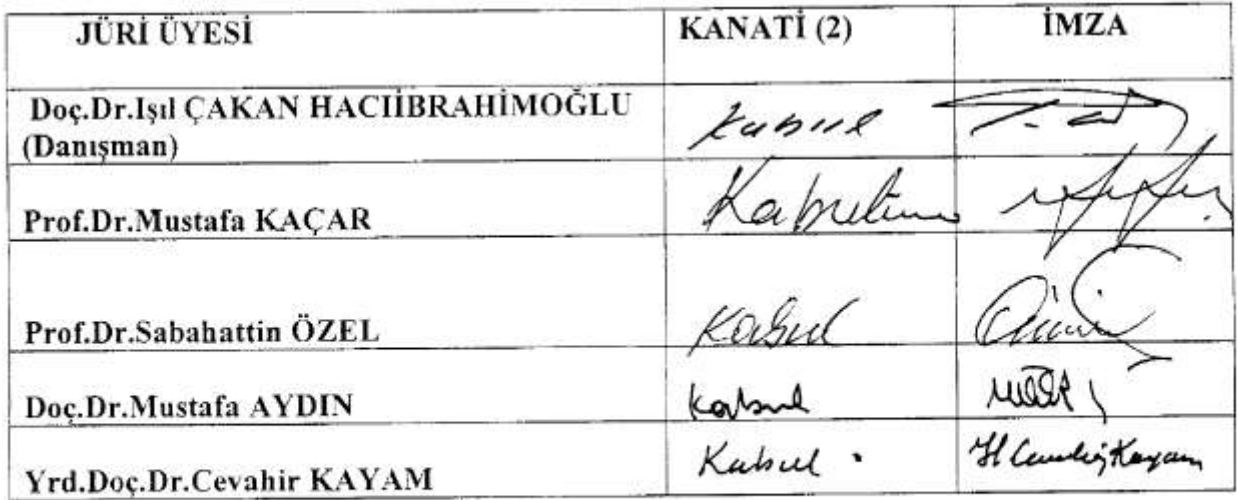 JÜRİ ÜYESİ KANATİ (2) İMZA
Doç.Dr.Işıl ÇAKAN HACIİBRAHİMOĞLU
(Danışman) Kabul
Prof.Dr.Mustafa KAÇAR Kabul
Prof.Dr.Sabahattin ÖZEL Kabul
Doç.Dr.Mustafa AYDIN Kabul
Yrd.Doç.Dr.Cevahir KAYAM Kabul .